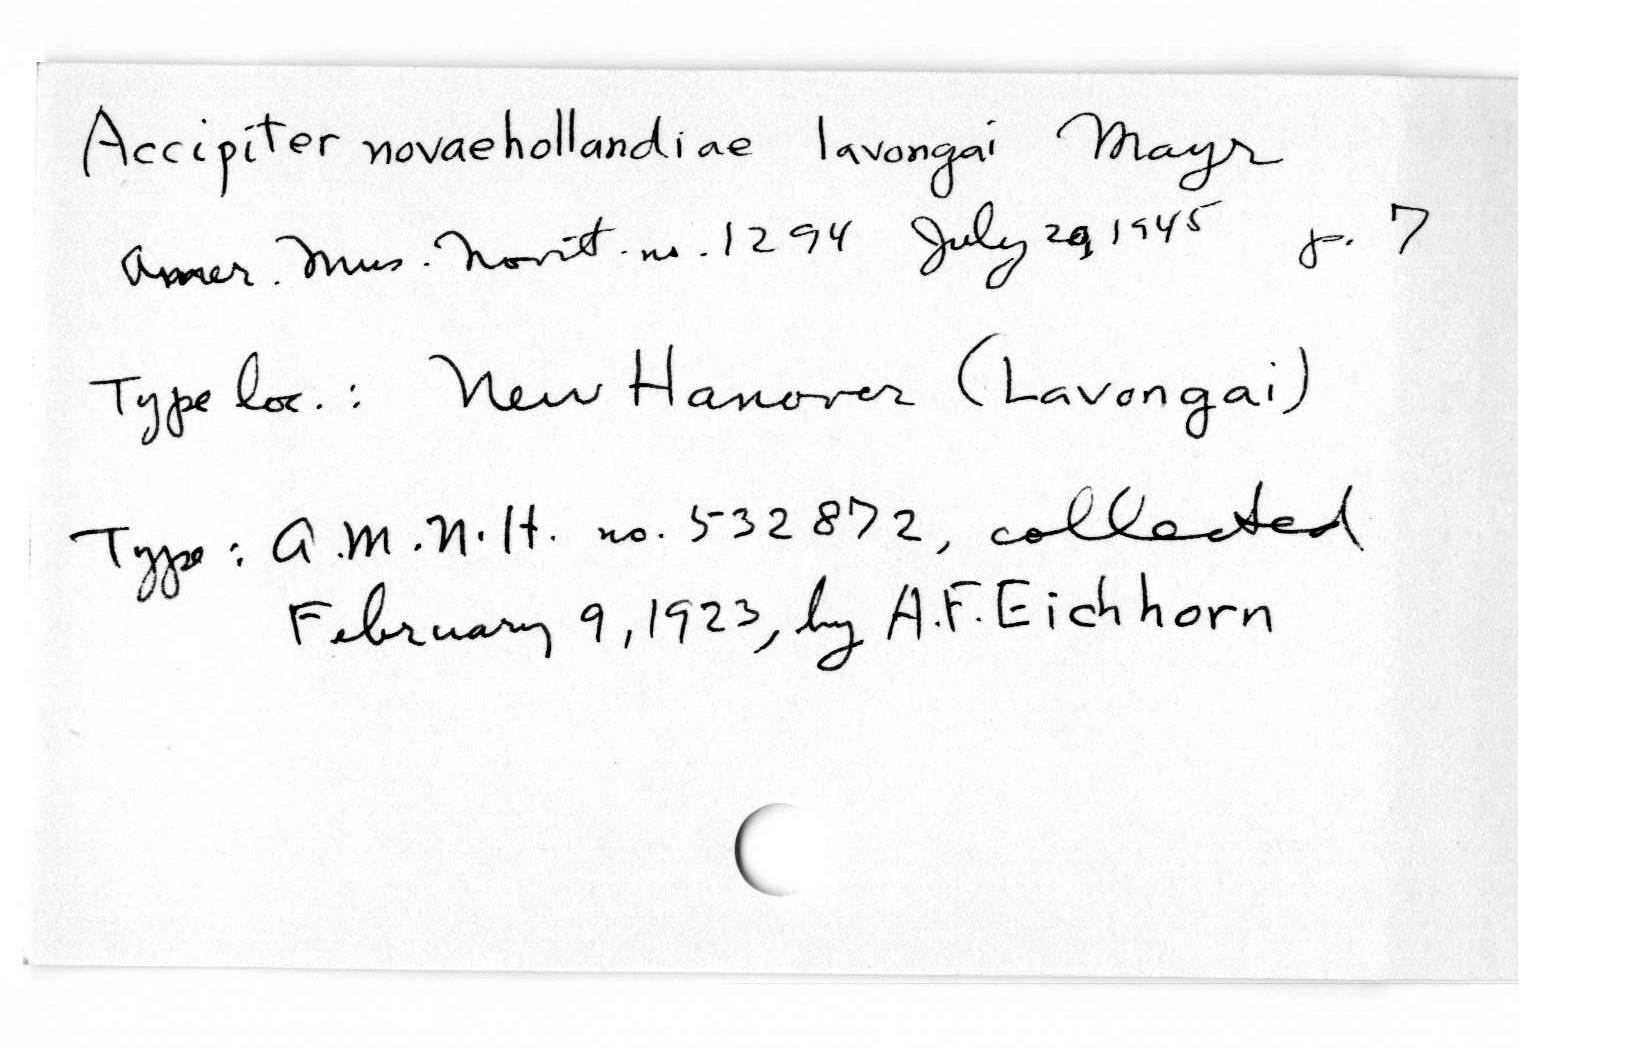 Accipiter novaehollandiae lavongai Mayr
Amer. Mus. Novit. no. 1294 July 20, 1945 p. 7
Type loc. : New Hanover (Lavongai)
Type : A.M.N.H. no. 532872, collected
February 9, 1923, by A.F. Eichhorn